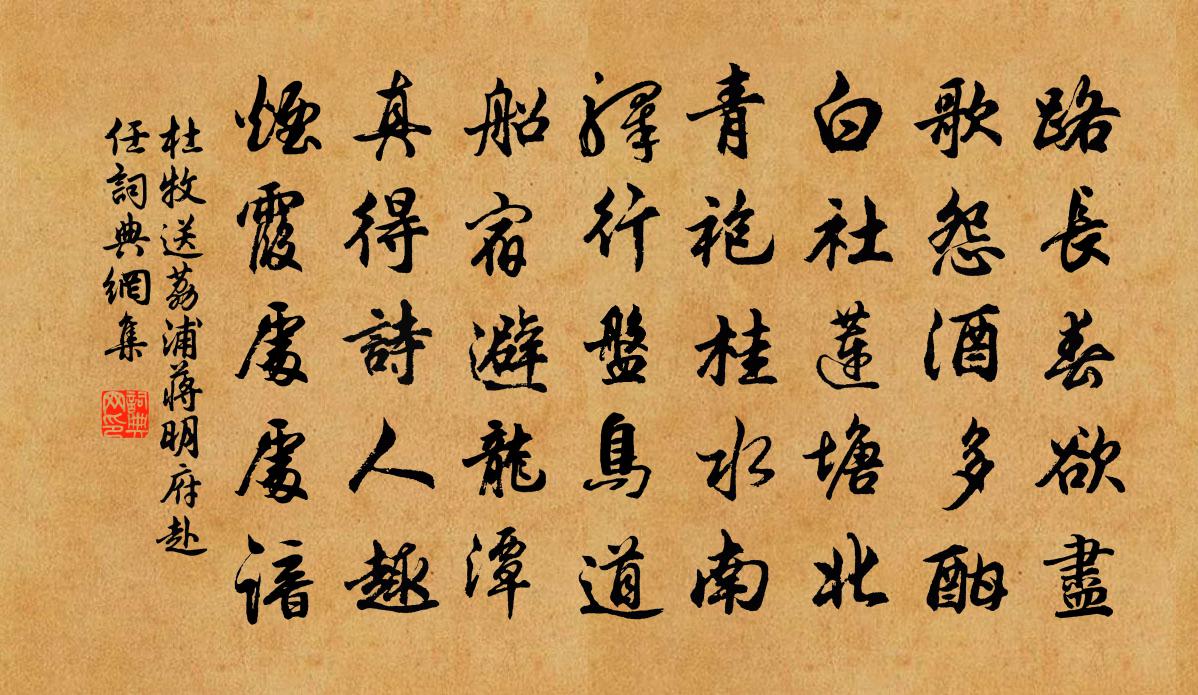 路長春欲盡
歌怨酒多酣
白社蓮塘北
青袍桂水南
驛行盤鳥道
船宿避龍潭
真得詩人趣
煙霞處處諳
杜牧送荔浦蔣明府赴
任詞典網集
詞典
网印